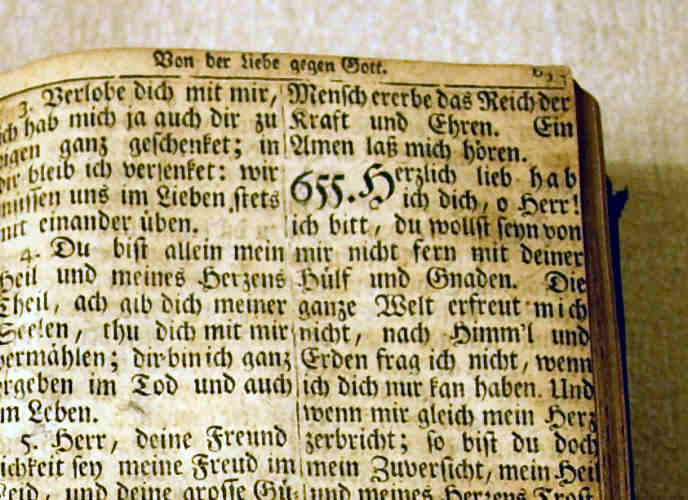 Von der Liebe gegen Gott.
3. Verlobe dich mit mir,
ich hab mich ja auch dir zu
eigen ganz geschenket; in
dir bleib ich versenket: wir
müssen uns im Lieben stets
mit einander üben.
4. Du bist allein mein
Heil und meines Herzens
Theil, ach gib dich meiner
Seelen, thu dich mit mir
vermählen; dir bin ich ganz
ergeben im Tod und auch
im Leben.
5. Herr, deine Freund
lichkeit sey meine Freud im
Leid, und deine grosse Gü-
Mensch ererbe das Reich der
Kraft und Ehren. Ein
Amen laß mich hören.
655. Herzlich lieb hab
ich dich, o Herr!
ich bitt, du wollst seyn von
mir nicht fern mit deiner
Hülf und Gnaden. Die
ganze Welt erfreut mich
nicht, nach Himm'l und
Erden frag ich nicht, wenn
ich dich nur kan haben. Und
wenn mir gleich mein Herz
zerbricht; so bist du doch
mein Zuversicht, mein Heil
und meines Herzens Trost